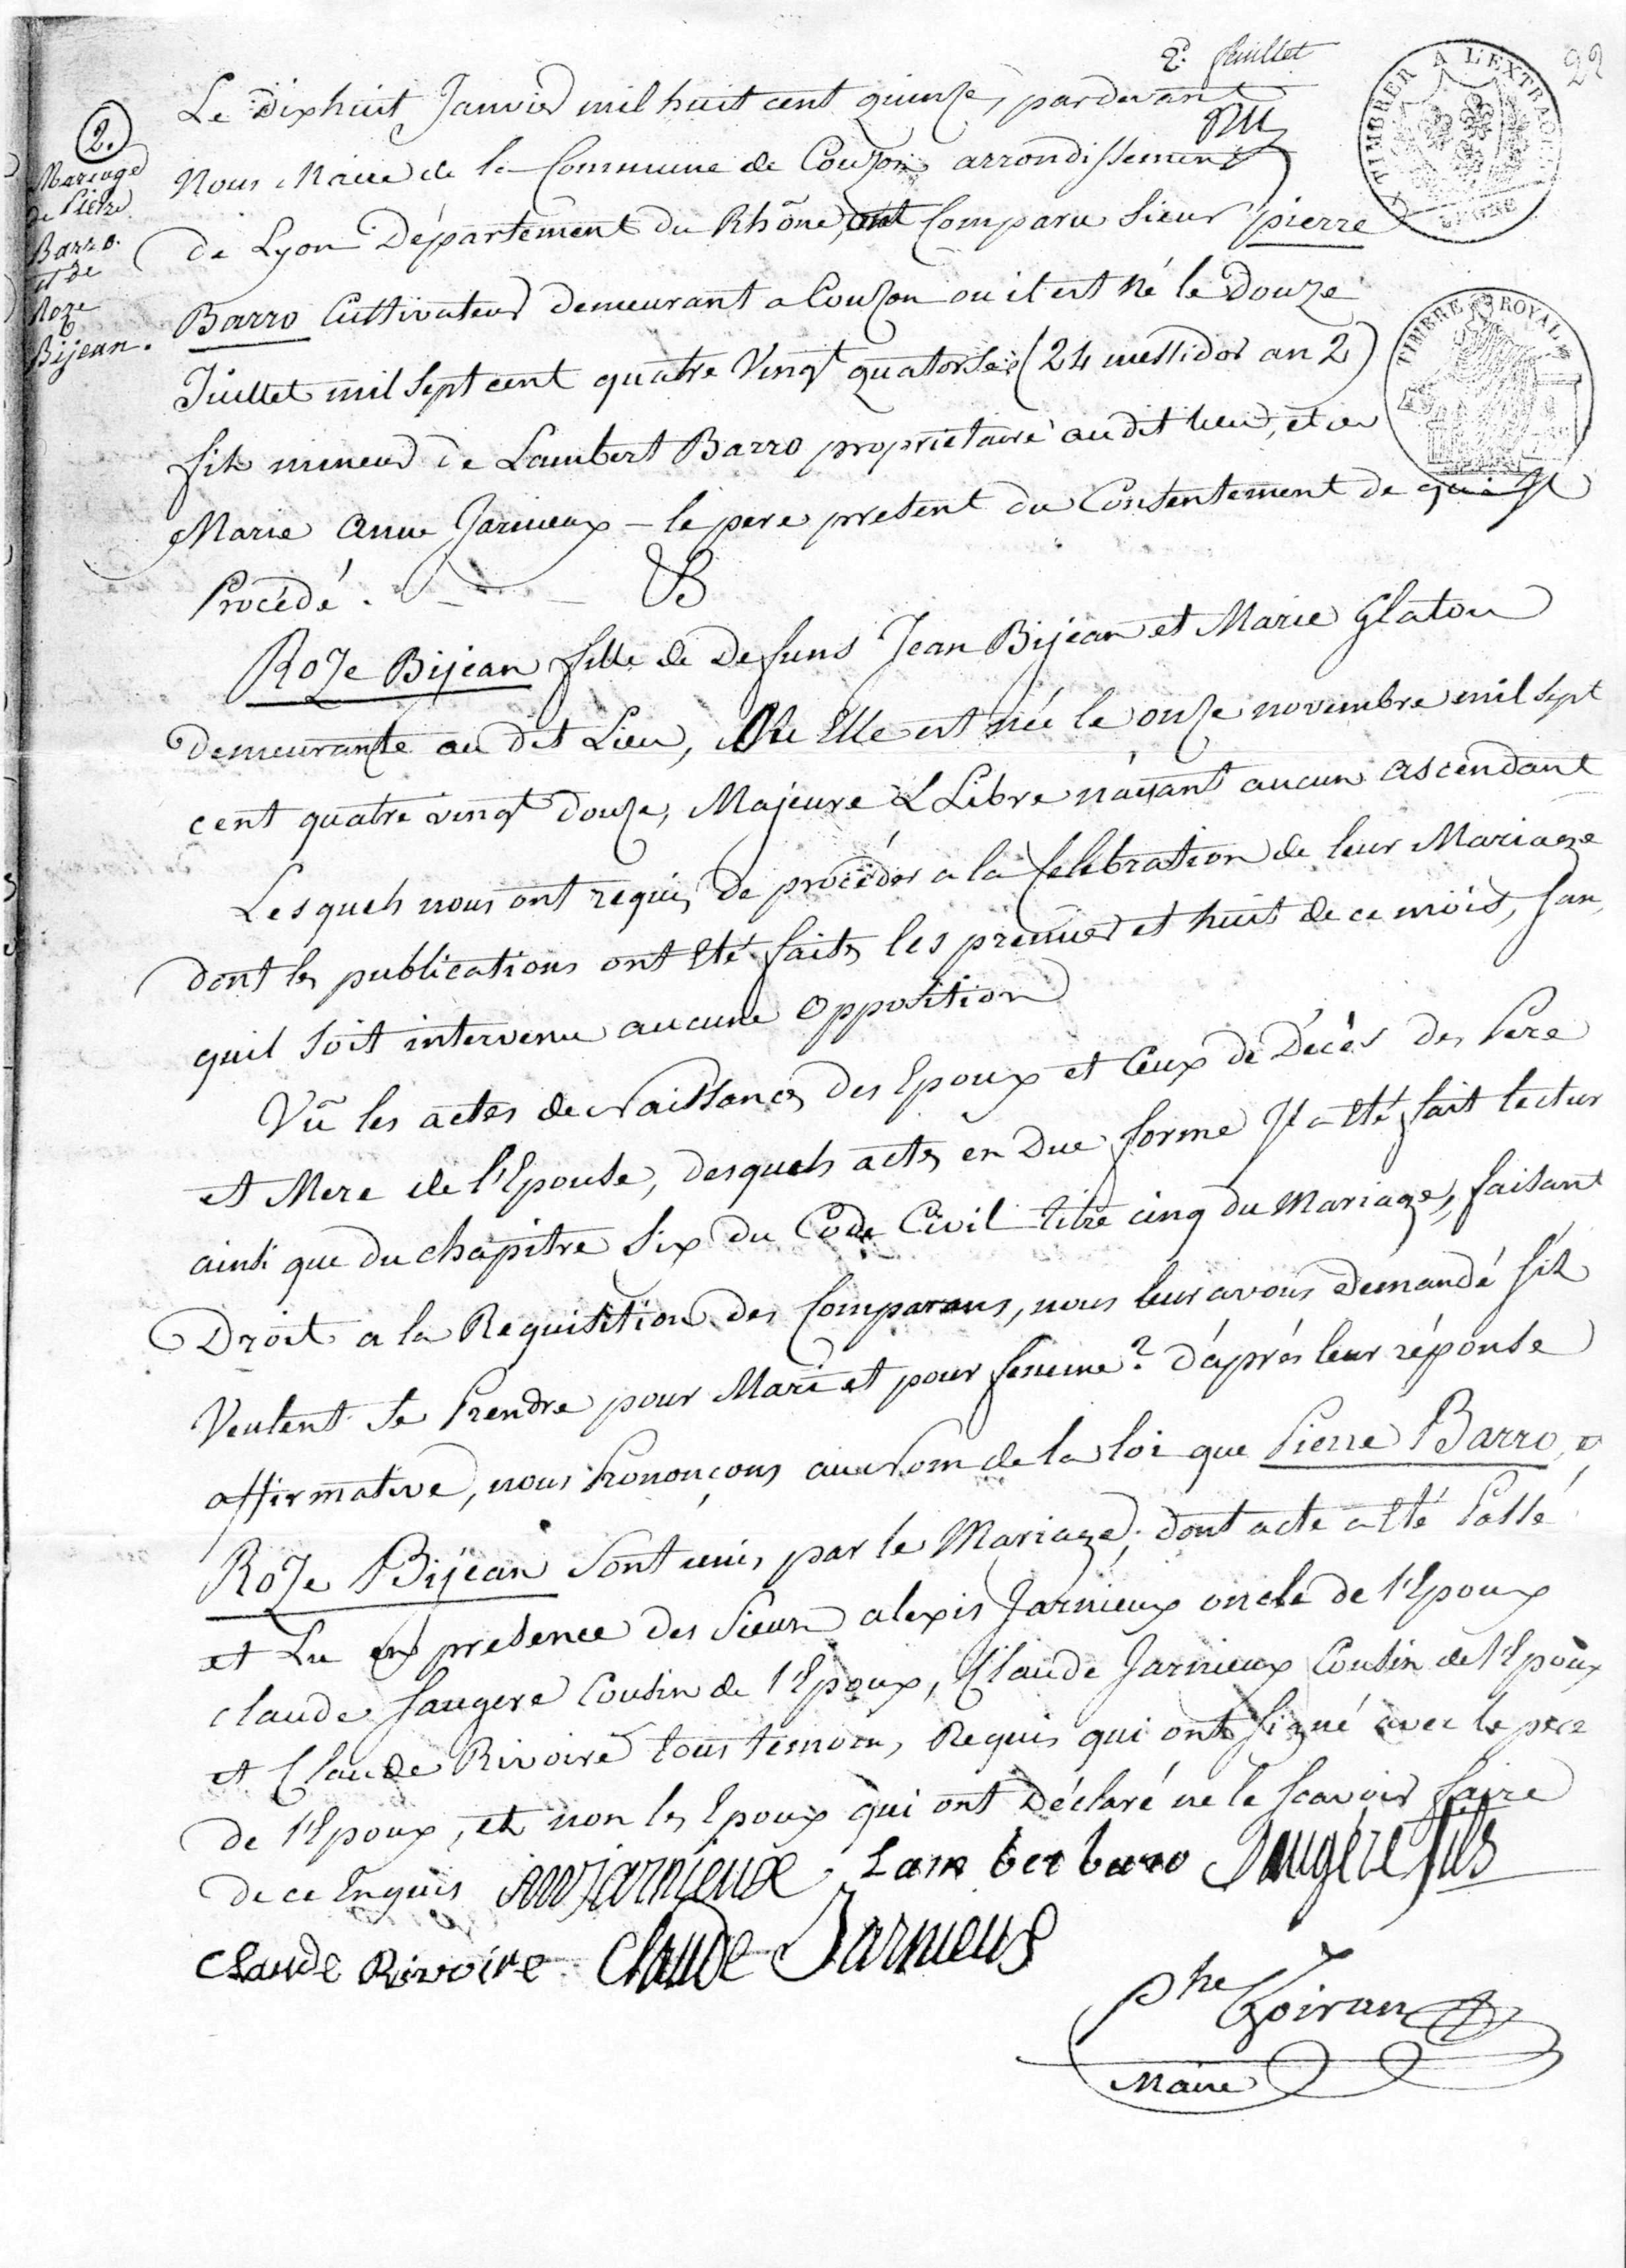 2e. feuillet
22
A TIMBRER A L'EXTRAORD
TIMBRE ROYAL
2.
Mariage
de Pierre
Barro.
et de
Roze
Bijean.
Le dixhuit Janvier mil huit cent quinze, pardevant
Nous Maire de la Commune de Couzon arrondissement
de Lyon Département du Rhône, ont Comparu Sieur pierre
Barro Cultivateur demeurant a Couzon ou il est né le Douze
Juillet mil Sept cent quatre Vingt quatorse (24 messidor an 2)
fils mineur de Lambert Barro propriétaire audit lieu, et de
Marie Anne Jarnieux – le pere present du Consentement de qui Il
Procédé.
Roze Bijean fille de Defuns Jean Bijean et Marie Glatou
Demeurante au dit Lieu, Ou Elle est née le onze novembre mil Sept
cent quatre vingt douze, Majeure & Libre n'ayant aucun ascendant
Lesquels nous ont requis de procéder a la Celebration de leur Mariage
dont les publications ont Eté faites les premier et huit de ce mois, sans
quil soit intervenu aucune Opposition
Vû les actes de Naissances des Epoux et Ceux de Décès des Pere
et Mere de l'Epouse, desquels actes en Due forme Il a Eté fait lecture
ainsi que du chapitre Six du Code Civil titre cinq du Mariage, faisant
Droit a la Requisition des Comparans, nous leur avons Demandé sils
Veulent se Prendre pour Mari et pour femme? d'après leur réponse
affirmative, nous Prononçons au Nom de la loi que Pierre Barro, et
Roze Bijean Sont unis par le Mariage; dont acte a Eté Passé
et Lu en presence des Sieurs alexis Jarnieux oncle de l'Epoux
claude faugere Cousin de l'Epoux, Claude Jarnieux Cousin de l'Epoux
et Claude Rivoire tous temoins, Requis qui ont signé avec le pere
de l'Epoux, et non les Epoux qui ont Déclaré ne le Scavoir faire
de ce Enquis jarnieux Lamber baro faugére fils
Claude Rivoire Claude Jarnieux
Phe Thoiran
Maire